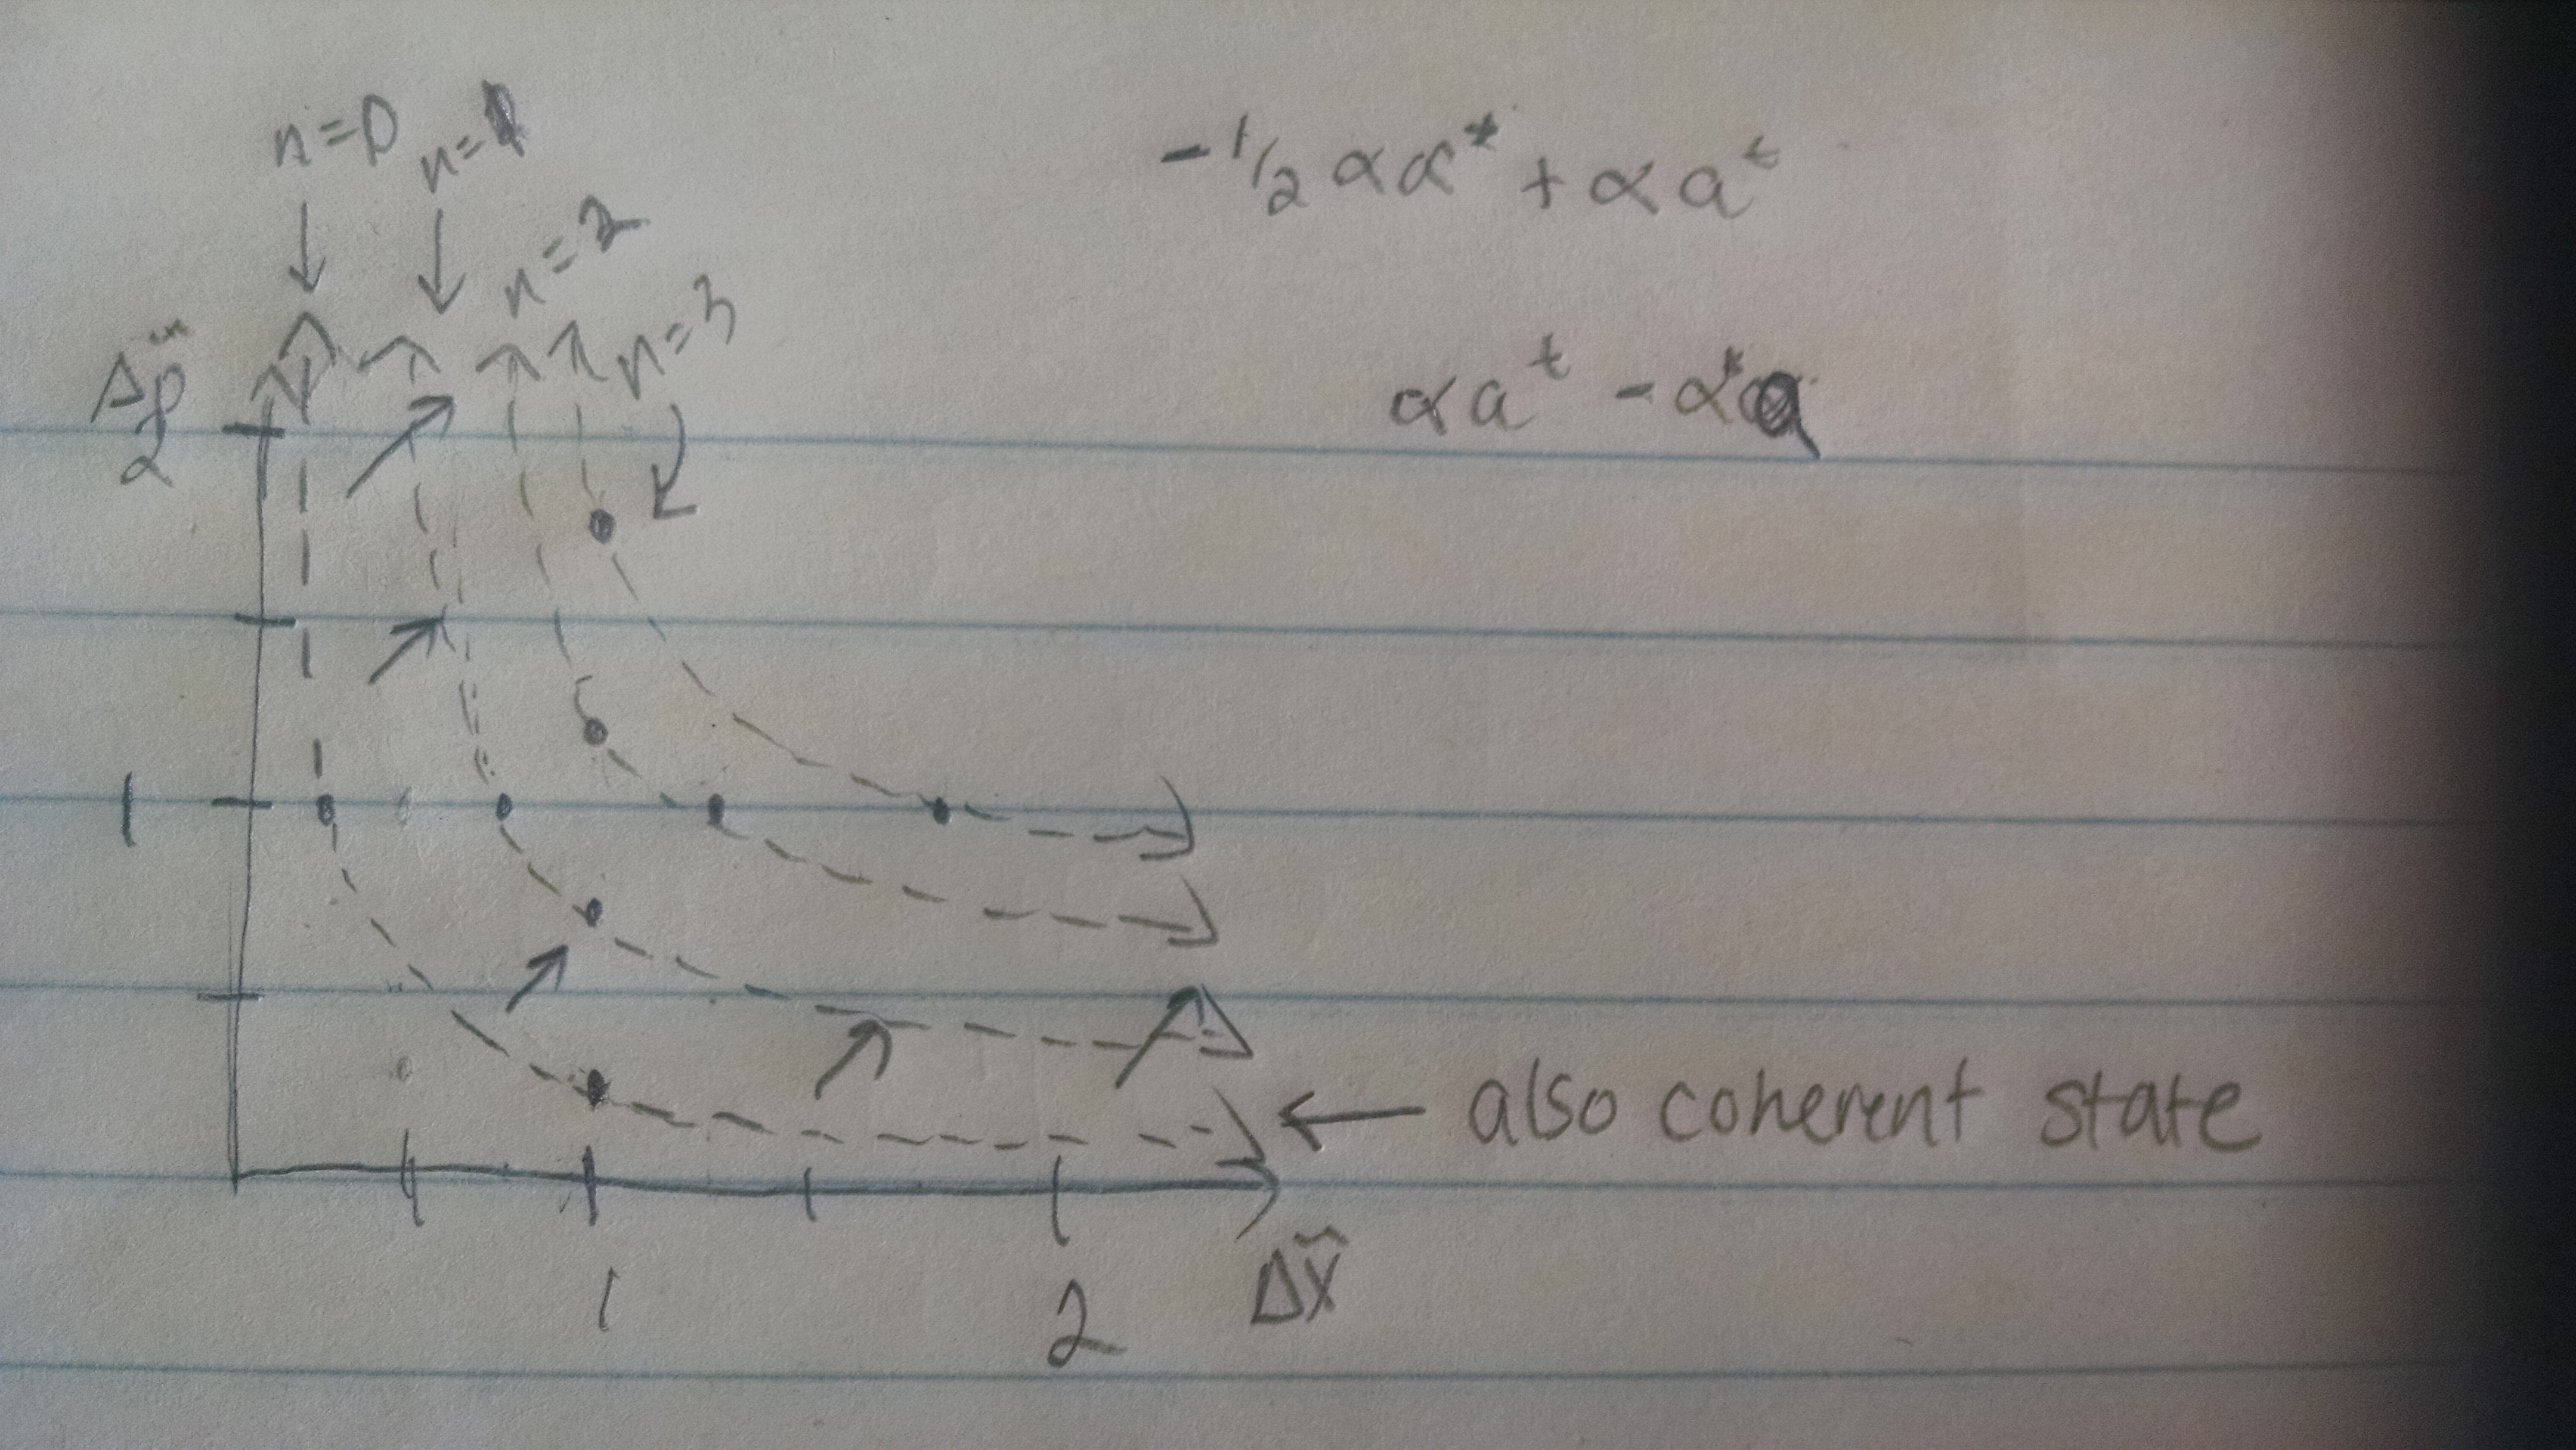 n=0 n=1
n=2
n=3
-1/2 αα* + αa†
αa† - α*a
Δp̃
2
1
← also coherent state
1 2 Δx̃